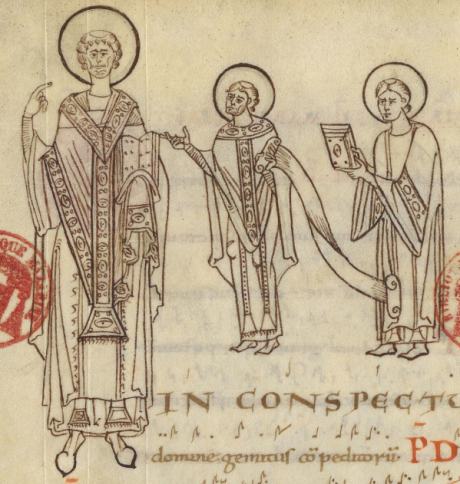 IN CONSPECTU
domine gemitus cõpeditorũ PD